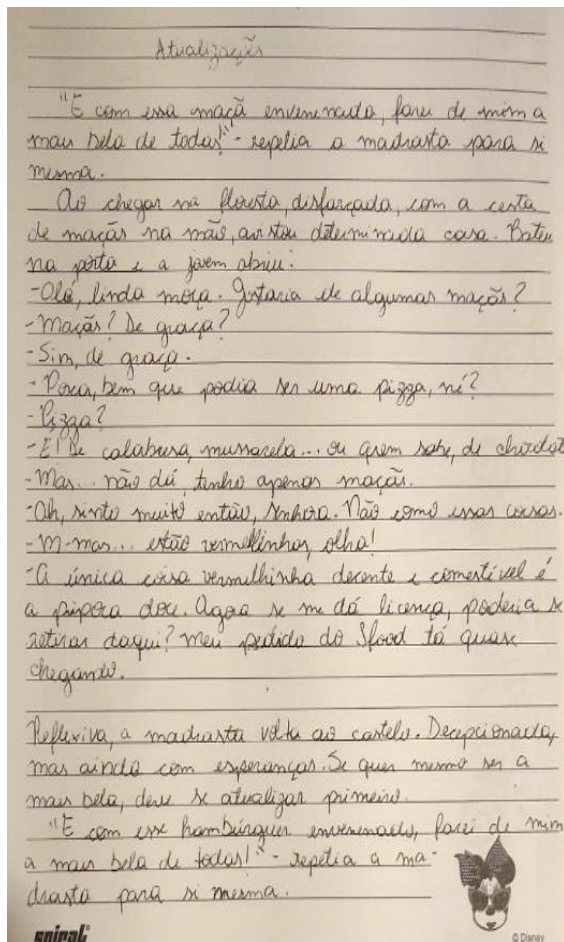 Atualizações
"E com essa maçã envenenada, farei de mim a
mais bela de todas!" - repetia a madrasta para si
mesma.
Ao chegar na floresta, disfarçada, com a cesta
de maçãs na mão, avistou determinada casa. Bateu
na porta e a jovem abriu:
-Olá, linda moça. Gostaria de algumas maçãs?
-Maçãs? De graça?
-Sim, de graça.
-Poxa, bem que podia ser uma pizza, né?
-Pizza?
-É! De calabresa, mussarela... ou quem sabe, de chocolat
-Mas... não dá, tenho apenas maçãs.
-Ah, sinto muito então, senhora. Não como essas coisas.
-M-mas... estão vermelhinhas, olha!
-A única coisa vermelhinha decente e comestível é
a pipoca doce. Agora se me dá licença, poderia se
retirar daqui? Meu pedido do Ifood tá quase
chegando.
Reflexiva, a madrasta volta ao castelo. Decepcionada,
mas ainda com esperanças. Se quer mesmo ser a
mais bela, deve se atualizar primeiro.
"E com esse hambúrguer envenenado, farei de mim
a mais bela de todas!" - repetia a ma-
drasta para si mesma.
spiral
© Disney